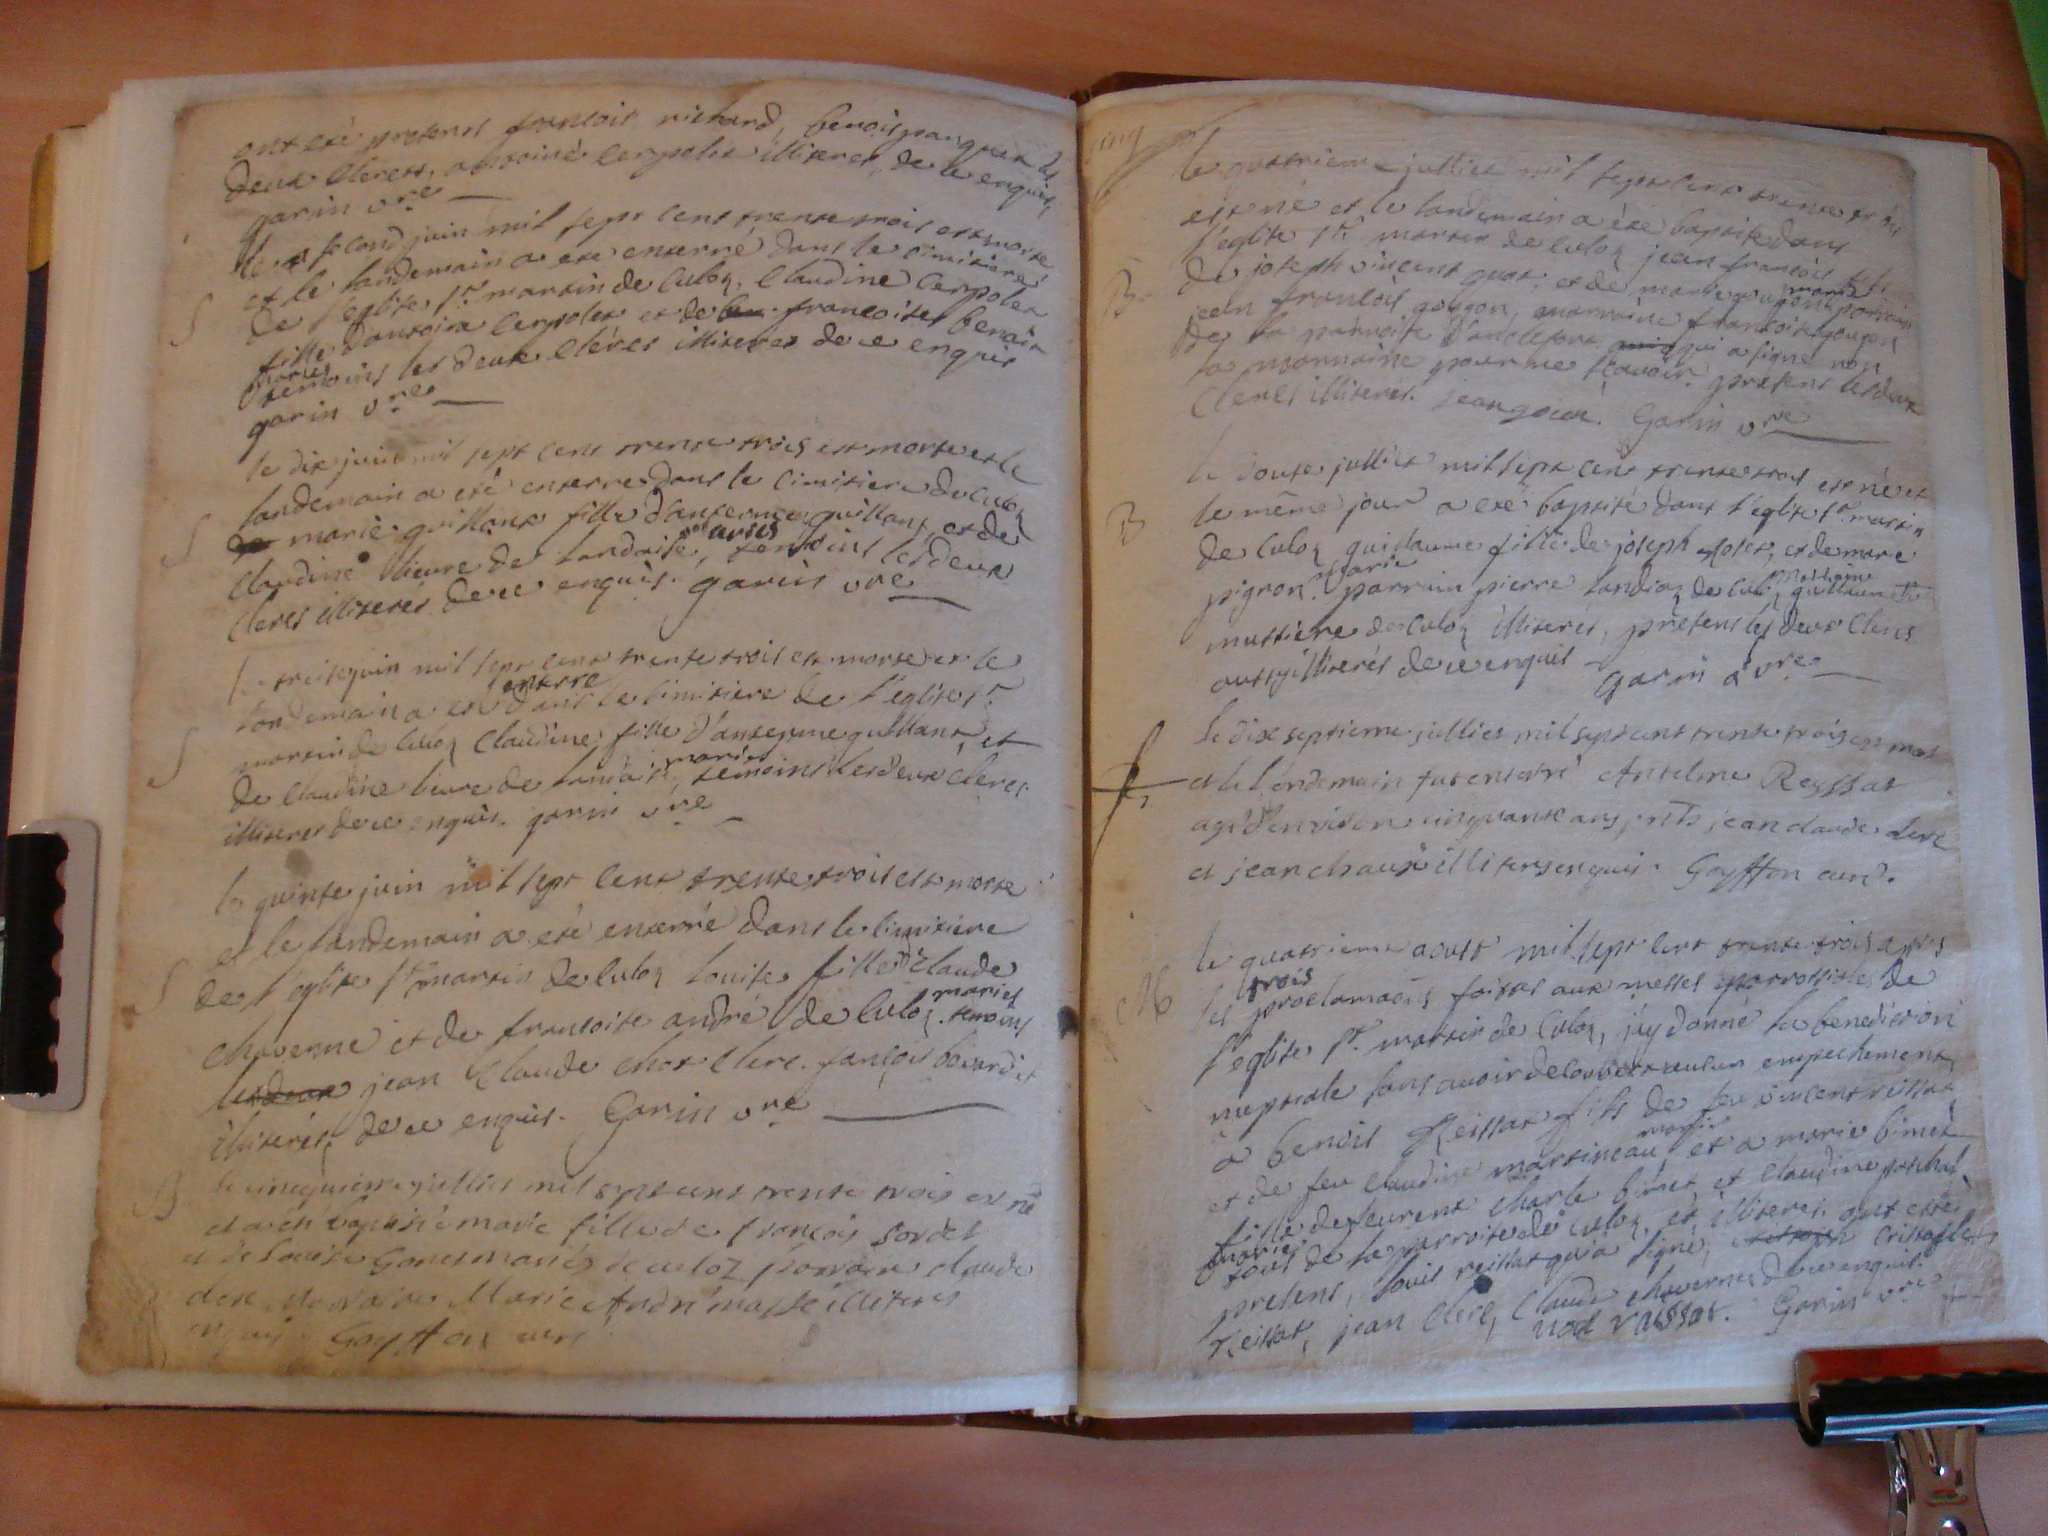 ont eté presens francois richard, benois panquet les
deux clercs, antoine cerpolet illiteres, de ce enquis,
garin vre
le second juin mil sept cent trente trois est morte
et le landemain a ete enterré dans le cimitiere
de l'eglise st martin de culoz, claudine cerpolet
S
fille d'antoine cerpolet et de francoise benoit
mariés
temoins les deux clércs illiteres de ce enquis
garin vre
le dix juin mil sept cent trente trois est morte et le
landemain a eté enterre dans le cimitiere de culoz
S
marie guillant fille d'anterme guillant, et de
claudine lieure de landaise, mariés temoins les deux
clercs illiteres de ce enquis. garin vre
le treise juin mil sept cent trente trois est morte et le
enterre
landemain a eté dans le cimitiere de l'eglise st
S
martin de culoz claudine fille d'anterme guillant, et
mariés
de claudine lieure de landaise, temoins les deux clercs
illiteres de ce enquis. garin vre
le quinse juin mil sept cent trente trois est morte
et le landemain a eté enterré dans le cimitiere
S
de l'eglise st martin de culoz louise fille de claude
mariés
chavenne et de francoise andré de culoz temoins
les deux jean claude chat clerc. françois bovard et
illiterés, de ce enquis. Garin vre
B
le cinquieme juillies mil sept cent trente trois est né
et a eté baptisé marie fille de françois sordet
et de louise mariés de culoz parrain claude
clerc marraine Marie André illiteres
enquis Gayffon curé
cinq
le quatrieme julliet mil sept cent trente trois
est né et le landemain a été baptisé dans
l'eglise st martin de culoz jean francois fils
B
de joseph vincent et de marie mariés parrain
jean francois gougon, marraine francoise gougon
de la parroise d'anglefort qui a signé non
la marraine pour ne scavoir. presens les deux
clercs illiteres. Garin vre
le douse julliet mil sept cen trente trois est né et
B
le même jour a eté baptisé dans l'eglise st martin
de culoz guillaume fille de joseph et de marie
mariés
pigron. parrain pierre landiaz de culoz marraine guillaumette
mustiere de culoz illiteres, presens les deux clercs
aussy illiterés de ce enquis
Garin vre
le dix septieme jullies mil sept cent trente trois est mort
et le lendemain fut enterré Antelme Reyssat
agé d'environ cinquante ans pnts jean claude clerc
et jean chaux illiters enquis. Gayffon curé.
le quatrieme aoust mil sept cent trente trois apres
M
les trois proclamaõns faites aux messes parroissiales de
l'eglise st martin de culoz, j'ay donné la benediction
nuptiale sans avoir decouvert aucun empechement
a benois Reissat fils de feu vincent reissat
mariés
et de feu claudine martineau, et a marie binet
fille de feu charle binet et claudine
mariés
tous de la parroise de culoz, et illiteres. ont esté
presens, louis reissat qui a signé, cristofle
Reissat, jean clerc, claude chavenne de ce enquis.
Garin vre